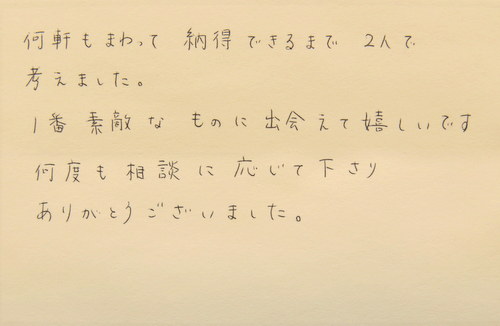 何軒もまわって 納得できるまで 2人で
考えました。
1番 素敵な ものに出会えて嬉しいです
何度も相談に応じて下さり
ありがとうございました。